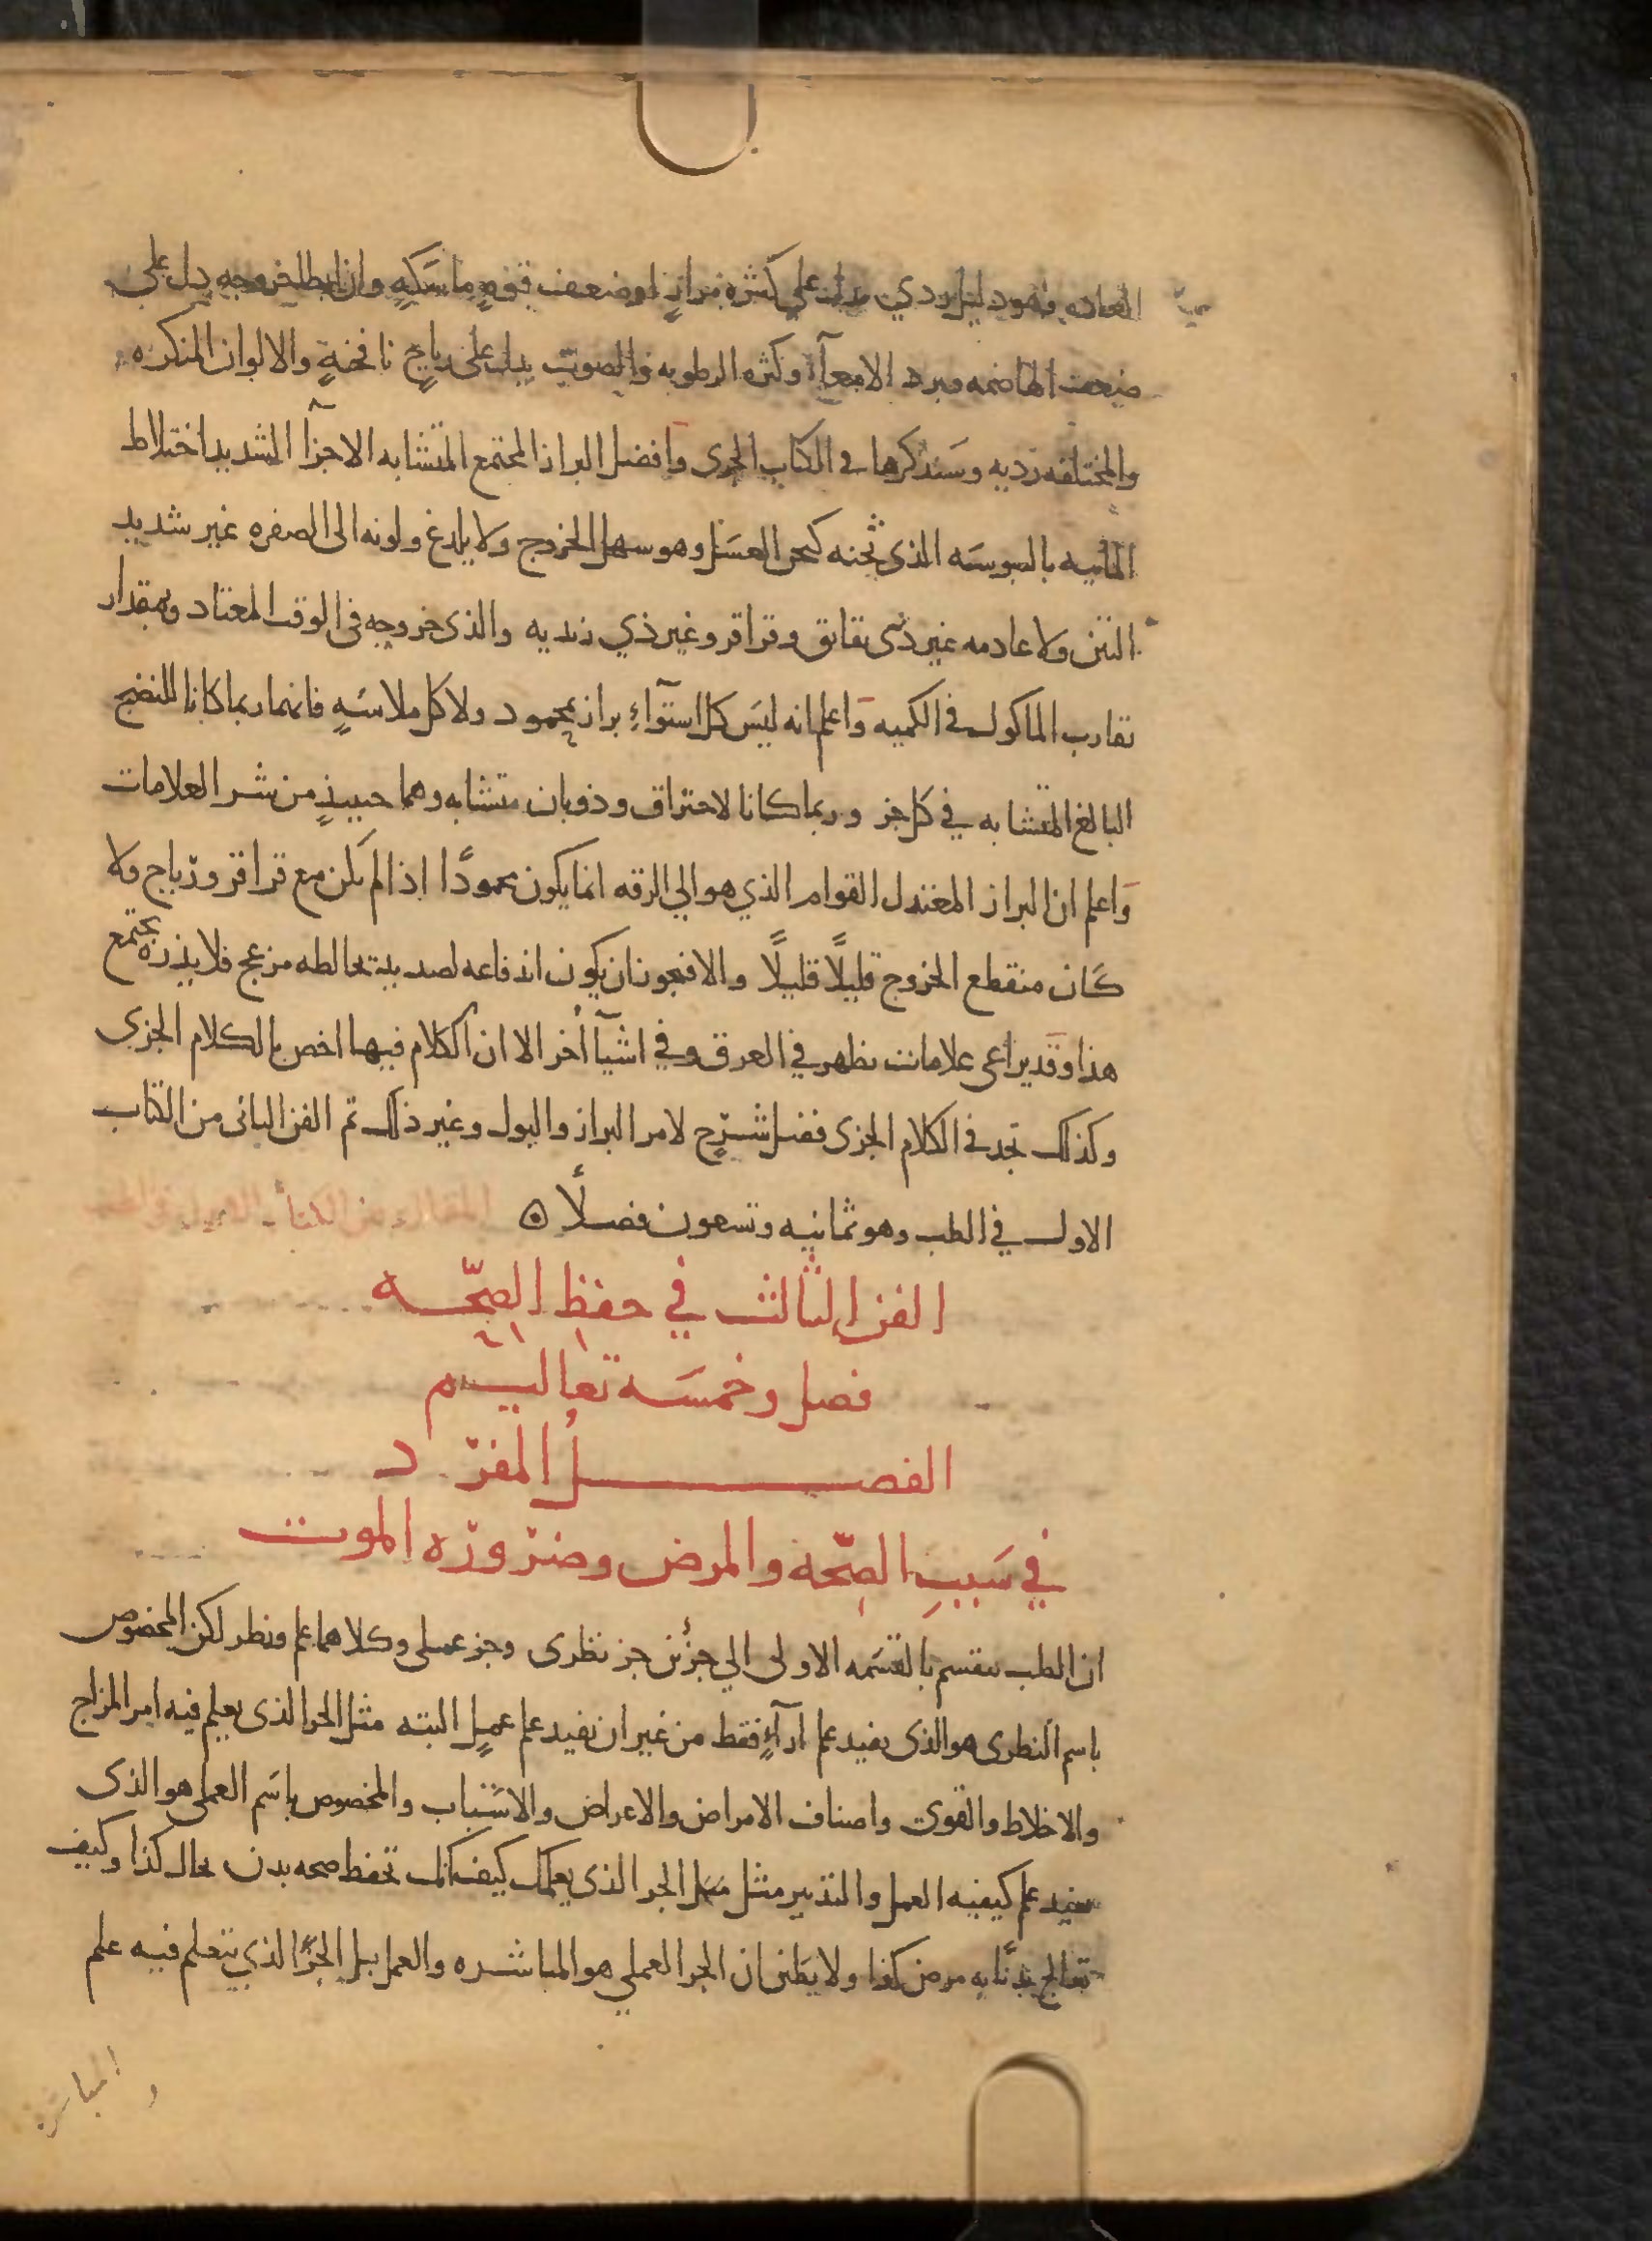 العاده فهو دليل ردي يدل علي كثره مرارٍ او ضعف قوهٍ ماسكهٍ وان ابطا خروجه دل علي
ضعف الهاضمه وبرد الامعآ او كثره الرطوبه والصوت يدل علي رياحٍ نافخةٍ والالوان المنكره
والمختلفه رديه وسنذكرها في الكتاب الجزي وافضل البراز المجتمع المتشابه الاجزآ الشديد اختلاط
المائيه باليبوسه الذي ثخنه كثخن العسل وهو سهل الخروج ولا يلدغ ولونه الى الصفره غير شديد
النتن ولا عادمه غير ذي بقابق وقراقر وغير ذي زبديه والذي خروجه في الوقت المعتاد وبمقدار
تقارب الماكول في الكميه واعلم انه ليس كل استوآءِ براز بمحمود ولا كل ملاسةٍ فانهما ربما كانا للنضج
البالغ المتشابه في كل جز وربما كانا لاحتراق وذوبان متشابه وهما حينيذٍ من شر العلامات
واعلم ان البراز المعتدل القوام الذي هو الي الرقه انما يكون محمودًا اذا لم يكن مع قراقر ورياح ولا
كان منقطع الخروج قليلًا قليلًا والا فيجوز ان يكون اندفاعه لصديد يخالطه مزعج فلا يذره يجتمع
هذا وقد يراعى علامات تظهر في العرق وفي اشيآ أخر الا ان الكلام فيها اخص بالكلام الجزى
وكذلك تجد في الكلام الجزى فضل شرحٍ لامر البراز والبول وغير ذلك تم الفن الثانى من الكتاب
الاول في الطب وهو ثمانيه وتسعون فصلًا
الفن الثالث في حفظ الصّحّه
فصل وخمسَه تعاليم
الفصل المفرد
في سَببِ الصّحّه والمرض وضروره الموت
ان الطب ينقسم بالقسمه الاولى الي جزئن جز نظرى وجز عملى وكلاهما علم ونظر لكن المخصوص
باسم النظرى هو الذى يفيد علم ارآءٍ فقط من غير ان يفيد علم عملٍ البته مثل الجز الذى يعلم فيه امر المزاج
والاخلاط والقوى واصناف الامراض والاعراض والاسباب والمخصوص باسم العملى هو الذى
يفيد علم كيفيه العمل والتدبير مثل الجز الذى يعلمك كيف انك تحفظ صحه بدن بحال كذا وكيف
تعالج بدنًا به مرض كذا ولا يظن ان الجز العملي هو المباشره والعمل بل الجزا الذي يتعلم فيه علم
المباشرة